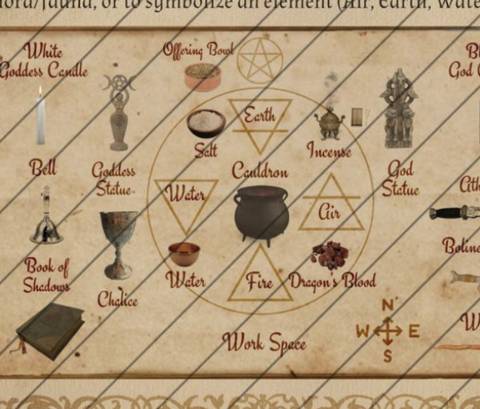 lora/fauna, or to symbolize an element (Air, Earth, Wate
White
Goddess Candle
Offering Bowl
Earth
Salt
Incense
Bell
Goddess
Statue
Cauldron
God
Statue
Water
Air
Book of
Shadows
Chalice
Water
Fire
Dragon's Blood
Work Space
N
W
E
S